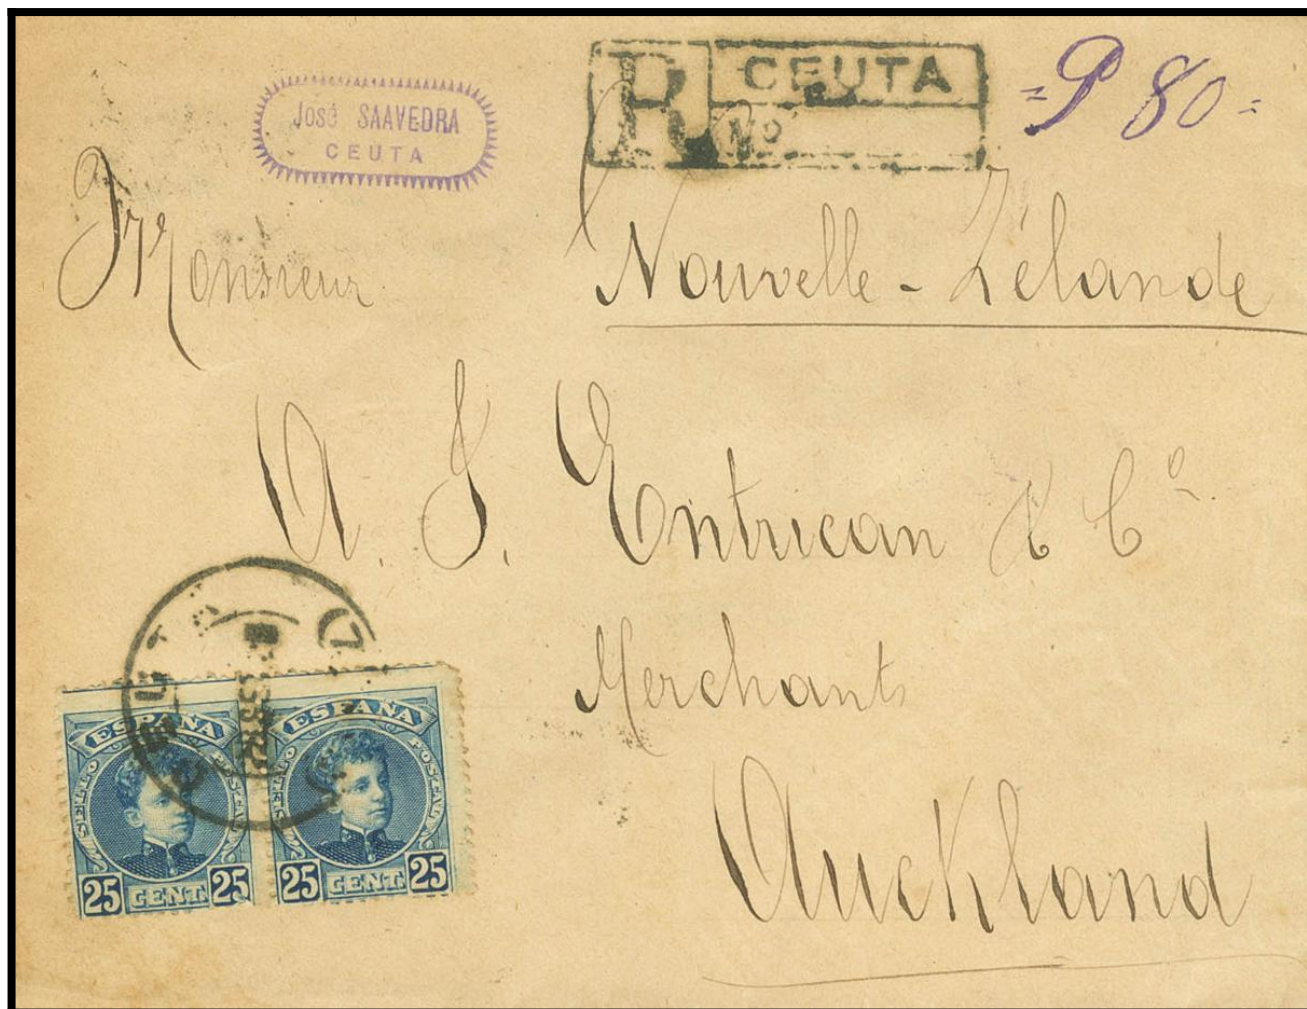 José SAAVEDRA
CEUTA
R CEUTA
Nº
=P 80=
Monsieur
Nouvelle-Zélande
A. J. Entrican & Cº
Merchants
Auckland
CEUTA
ESPAÑA
CORREO POSTAL
25 CENT. 25
ESPAÑA
25 CENT. 25